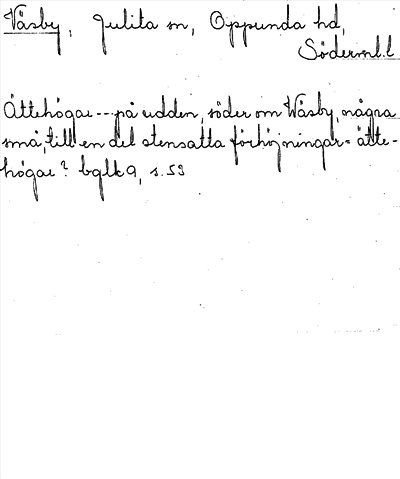 Våsby, Julita sn, Oppunda hd,
Söderml.l
Åttehögar --- på udden, söder om Wåsby, några
små, till en del stensatta förhöjningar = ätte-
högar? bglk 9, s. 53